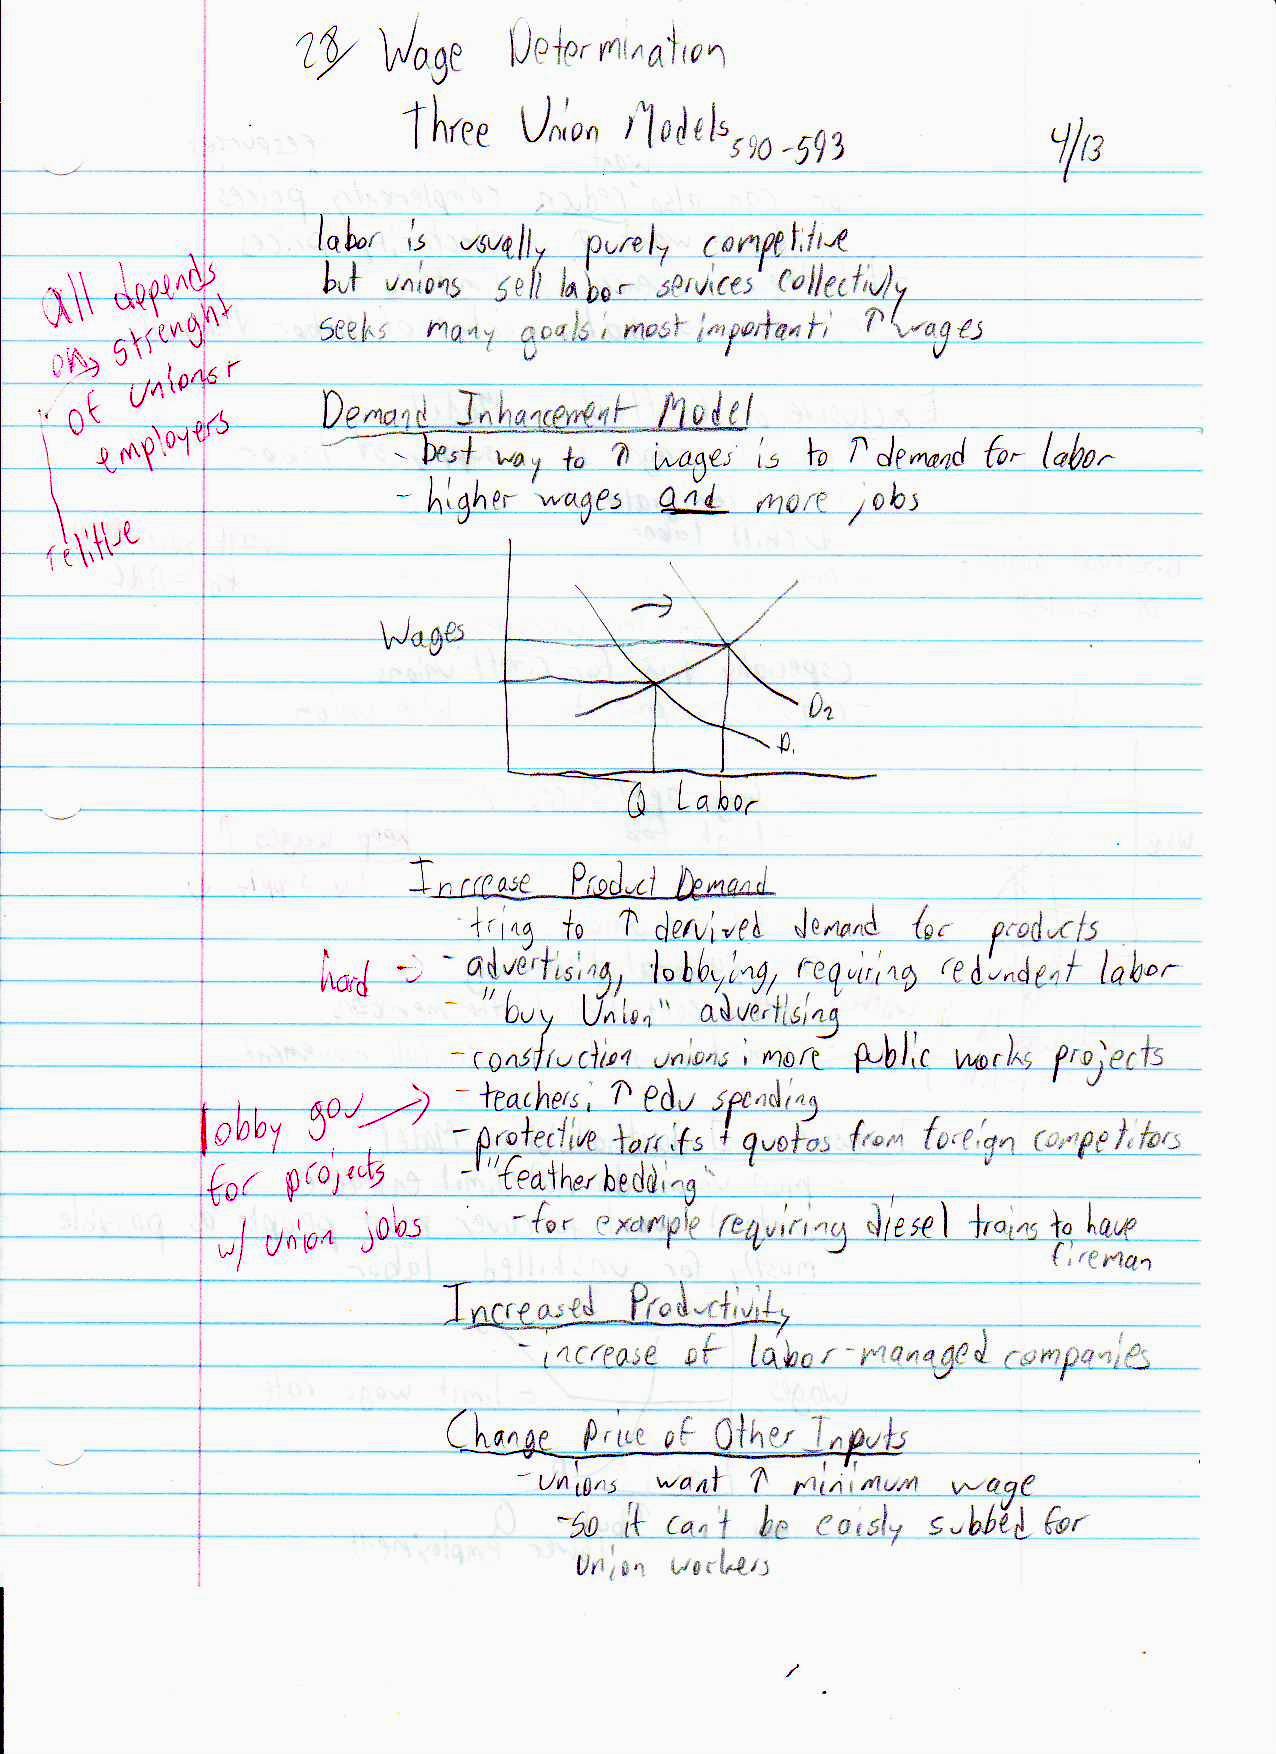 28 Wage Determination
Three Union Models 590-593
4/13
labor is usually purely competitive
but unions sell labor services collectivly
seeks many goals; most important; ↑ wages
all depends
on strenght
of unions +
employers
relitive
Demand Inhancement Model
- best way to ↑ wages is to ↑ demand for labor
- higher wages and more jobs
→
Wages
D2
D1
Q Labor
Increase Product Demand
- tring to ↑ dervived demand for products
hard → - advertising, lobbying, requiring redundent labor
- "buy Union" advertising
- construction unions; more public works projects
- teachers; ↑ edu spending
lobby gov →
for projects
w/ union jobs
- protective tarrifs + quotas from foreign competitors
- "featherbedding"
- for example requiring diesel trains to have
fireman
Increased Productivity
- increase of labor-managed companies
Change Price of Other Inputs
- unions want ↑ minimum wage
- so it can't be eaisly subbed for
union workers